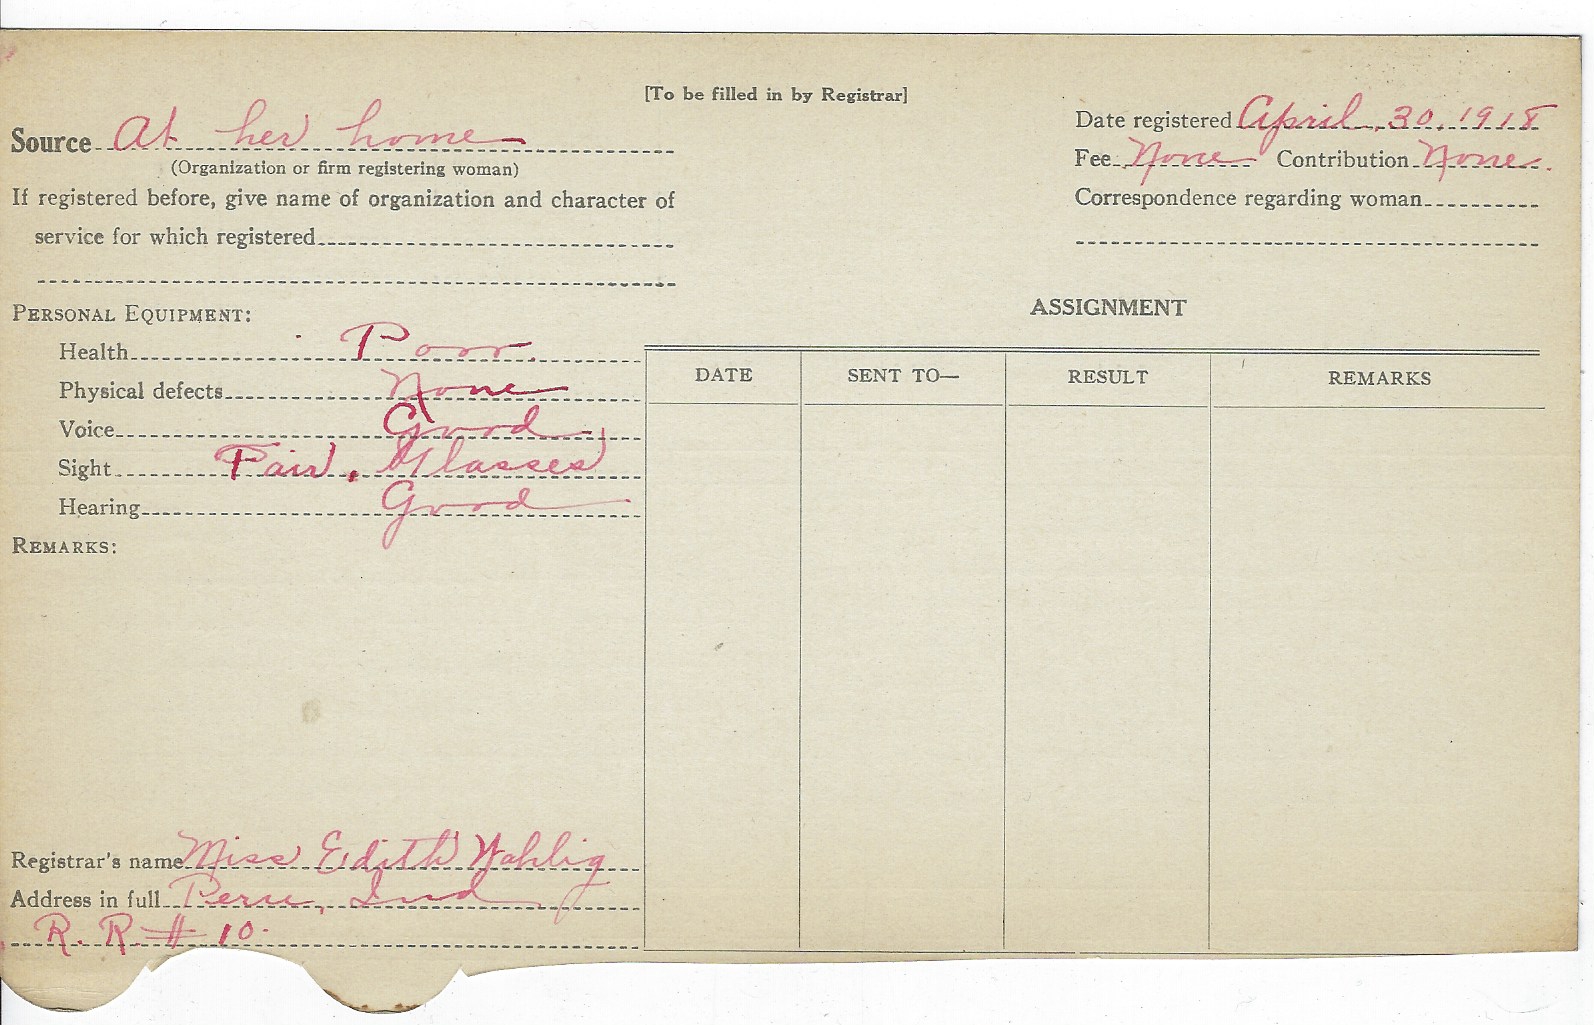 [To be filled in by Registrar]
Source At her home
(Organization or firm registering woman)
If registered before, give name of organization and character of
service for which registered
Date registered April 30, 1918
Fee None Contribution None.
Correspondence regarding woman
PERSONAL EQUIPMENT:
Health Poor.
Physical defects None
Voice Good
Sight Fair. Glasses
Hearing Good
REMARKS:
Registrar's name Miss Edith Wahlig
Address in full Peru, Ind
R. R. # 10.
ASSIGNMENT
DATE SENT TO— RESULT REMARKS